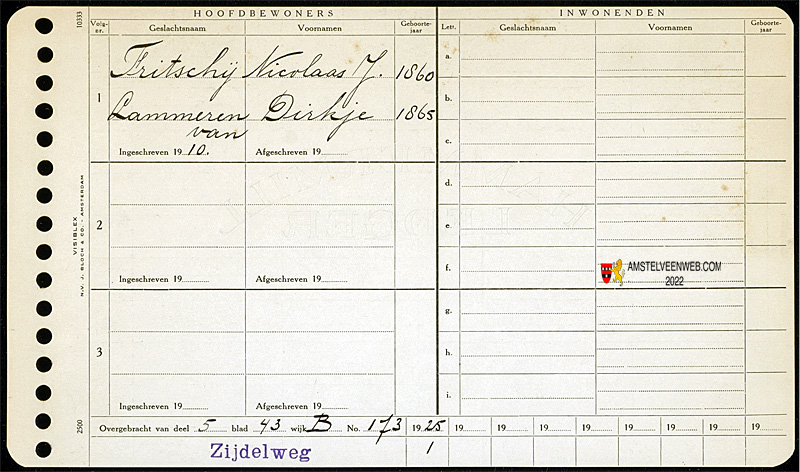 HOOFDBEWONERS INWONENDEN
Volg-nr. Geslachtsnaam Voornamen Geboorte-jaar Lett. Geslachtsnaam Voornamen Geboorte-jaar
10333
1 Fritschij Nicolaas J. 1860
Lammeren Dirkje 1865
van
Ingeschreven 1910. Afgeschreven 19
2
Ingeschreven 19 Afgeschreven 19
3
Ingeschreven 19 Afgeschreven 19
a.
b.
c.
d.
e.
f.
g.
h.
i.
AMSTELVEENWEB.COM
2022
VISIBLEX
N.V. J. BLOCH & CO. - AMSTERDAM
2500
Overgebracht van deel 5 blad 43 wijk B No. 173 1925 19 19 19 19 19 19 19 19
Zijdelweg 1